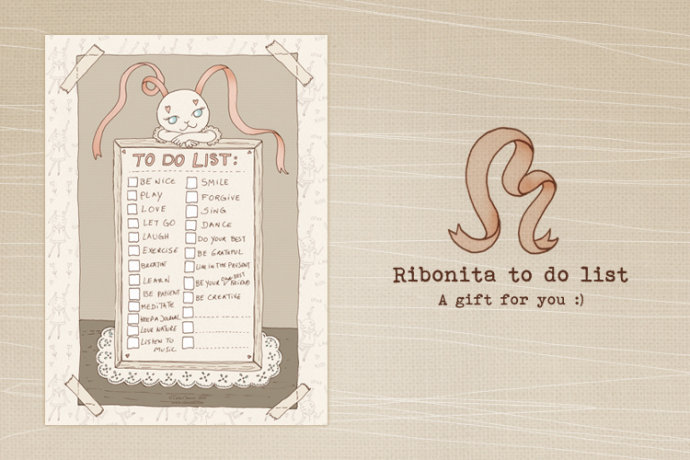 TO DO LIST:
BE NICE
PLAY
LOVE
LET GO
LAUGH
EXERCISE
BREATHE
LEARN
BE PATIENT
MEDITATE
KEEP A JOURNAL
LOVE NATURE
LISTEN TO
MUSIC
SMILE
FORGIVE
SING
DANCE
DO YOUR BEST
BE GRATEFUL
LIVE IN THE PRESENT
BE YOUR OWN BEST
FRIEND
BE CREATIVE
Ribonita to do list
A gift for you :)